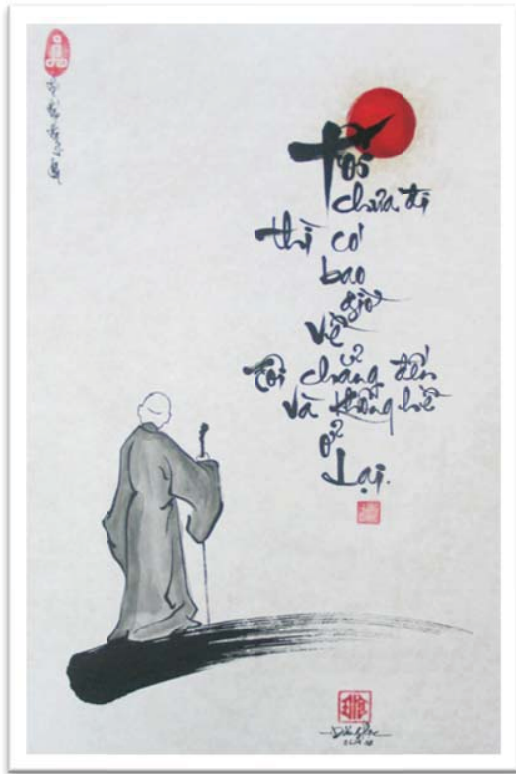 Tôi
chưa đi
thì có
bao
giờ
về
tôi chẳng đến
và không hề
ở
Lại.